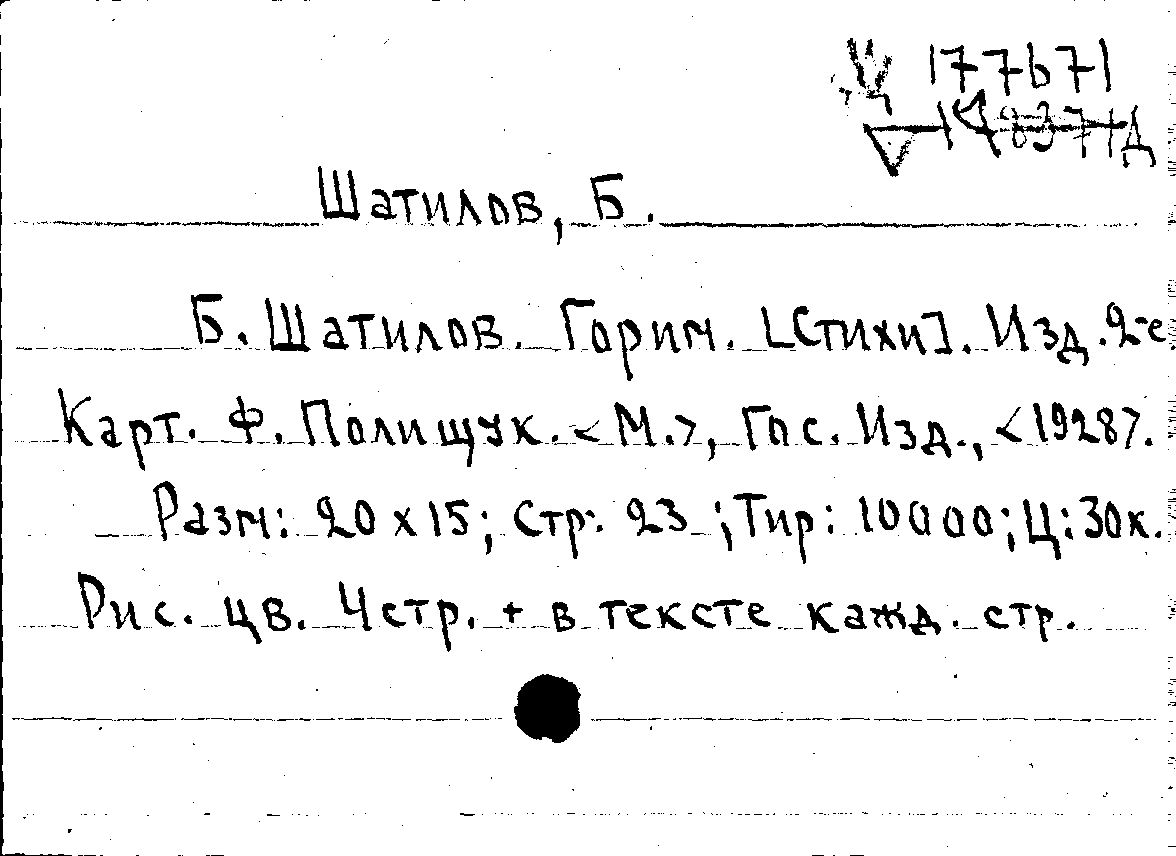 177671
Шатилов, Б.
Б. Шатилов. Горим. [Стихи]. Изд. 2-е
Карт. Ф. Полищук. <М.>, Гос. Изд., <1928>.
Разм: 20 х 15; Стр: 23; Тир: 10000; Ц: 30к.
Рис. цв. 4 стр. + в тексте кажд. стр.